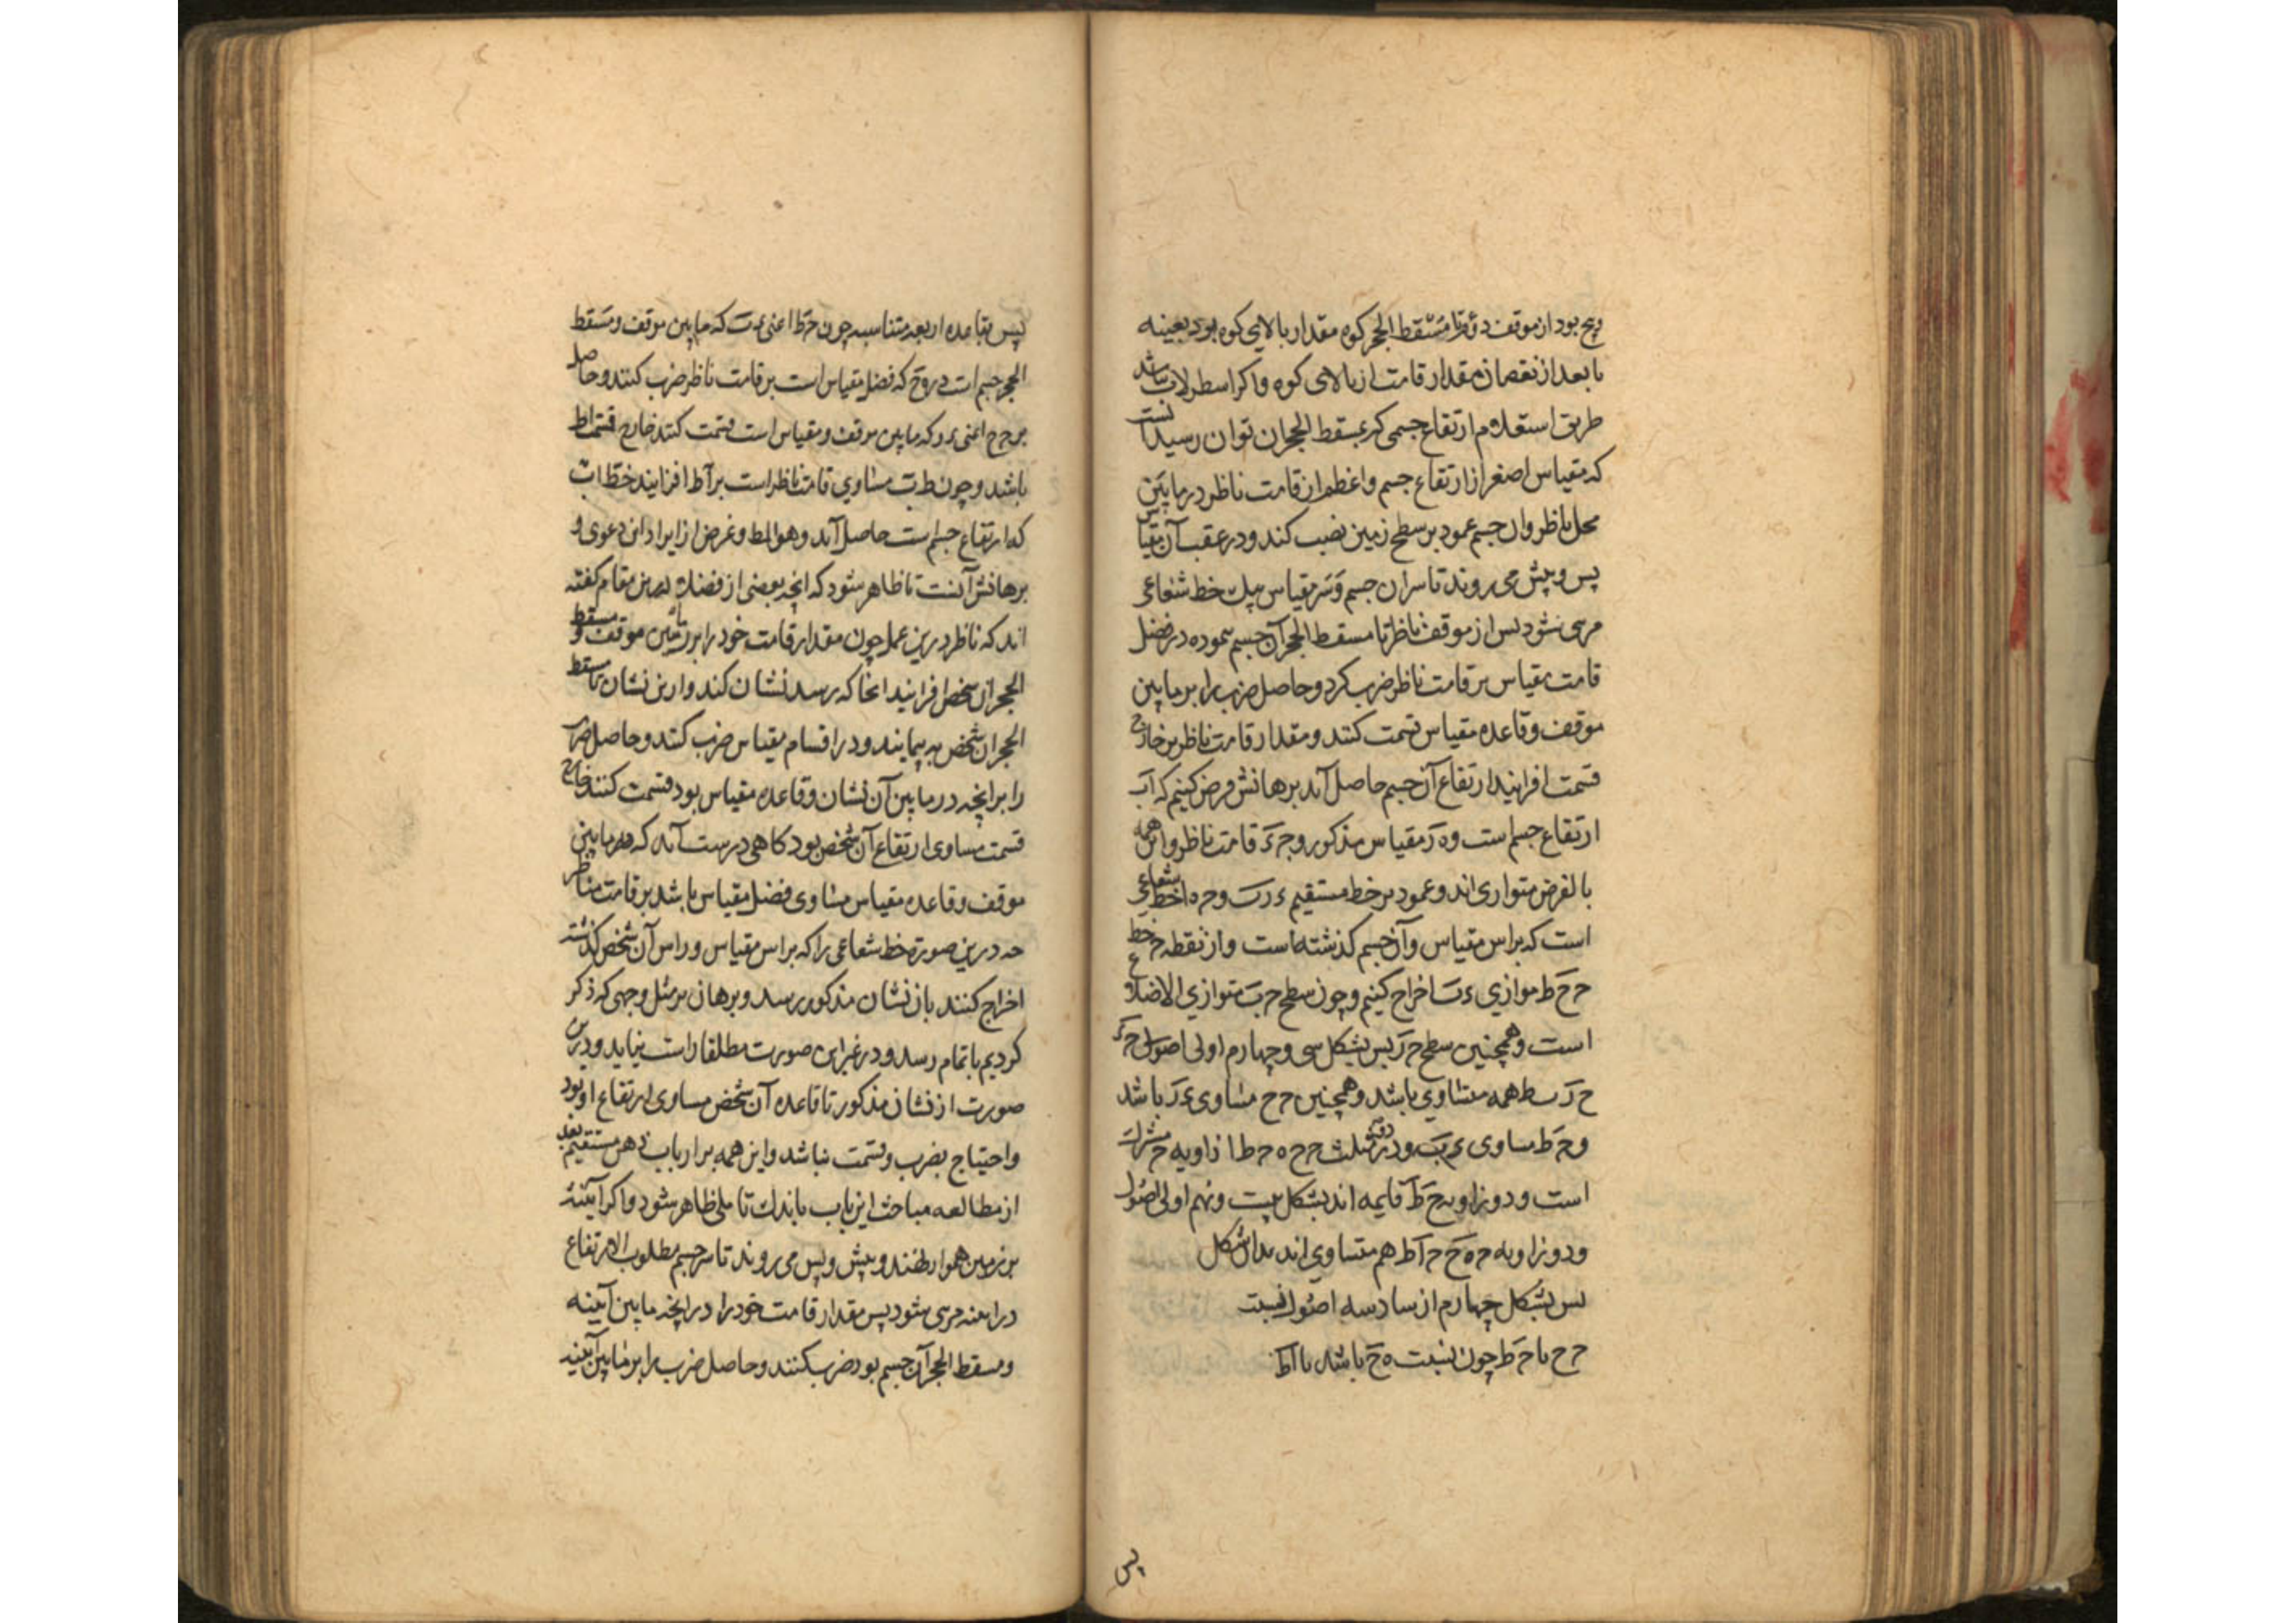 و پنج بود از موقف دوم تا مسقط الحجر کوه مقدار بالای کوه بود بعینه
یا بعد از نقصان مقدار قامت از بالای کوه و اکر اسطرلاب نباشد
طریق استعلام ارتفاع جسمی که بمسقط الحجر ان توان رسید انست
که مقیاس اصغر از ارتفاع جسم و اعظم از قامت ناظر در مابین
محل ناظر و ان جسم عمود بر سطح زمین نصب کند و در عقب آن مقیاس
پس و پیش می روند تا سر ان جسم و سر مقیاس بیک خط شعاعی
مرسی شود پس از موقف ناظر تا مسقط الحجر آن جسم پیموده در فضل
قامت مقیاس بر قامت ناظر ضرب کرد و حاصل ضرب را بر مابین
موقف و قاعده مقیاس قسمت کنند و مقدار قامت ناظر بر خارج
قسمت افزایند ارتفاع آن جسم حاصل آید برهانش فرض کنیم که اب
ارتفاع جسم است و ه ر مقیاس مذکور و ج ء قامت ناظر و این همه
بالفرض متوازی اند و عمود بر خط مستقیم ء ر ب و ج ه ا خط شعاعی
است که براس مقیاس و آن جسم کذشته است و از نقطه ج خط
ج ح ط موازی ء ب اخراج کنیم و چون سطح ج ب متوازی الاضلاع
است و همچنین سطح ج ر پس بشکل سی و چهارم اولی اصول ج ء
ح ر ب ط همه متساوی باشد و همچنین ج ح مساوی ء ر باشد
و ج ط مساوی ء ب و در دو مثلث ج ح ه ج ط ا زاویه ج مشترک
است و دو زاویه ح ط قایمه اند بشکل بیست و نهم اولی اصول
و دو زاویه ج ه ح ج ا ط هم متساوی اند بدان شکل
پس بشکل چهارم از سادسه اصول نسبت
ج ح با ج ط چون نسبت ه ح باشد با اط
پس
پس بقاعده اربعه متناسبه چون ج ط اعنی ء ب که مابین موقف و مسقط
الحجر جسم است در ه ح که فضل مقیاس است بر قامت ناظر ضرب کنند و حاصل
بر ج ح اعنی ء ر که مابین موقف و مقیاس است قسمت کنند خارج قسمت اط
باشد و چون ط ب مساوی قامت ناظر است بر اط افزایند خط اب
که ارتفاع جسم است حاصل آید و هو المط و غرض از ایراد این دعوی و
برهانش آنست تا ظاهر شود که انچه بعضی از فضلا درین مقام کفته
اند که ناظر درین عمل چون مقدار قامت خود را بر مابین موقف و مسقط
الحجر ان شخص افزایند انجا که رسد نشان کند و ازین نشان تا مسقط
الحجر ان شخص به پیمایند و در اقسام مقیاس ضرب کنند و حاصل ضرب
را بر انچه در مابین آن نشان و قاعده مقیاس بود قسمت کنند خارج
قسمت مساوی ارتفاع آن شخص بود کاهی درست آید که مابین
موقف و قاعده مقیاس مساوی فضل مقیاس باشد بر قامت ناظر
چه درین صورة خط شعاعی را که براس مقیاس و راس آن شخص کذشته
اخراج کنند بان نشان مذکور رسد و برهان بر مثل وجهی که ذکر
کردیم باتمام رسد و در غیر این صورت مطلقا راست نیاید و درین
صورت از نشان مذکور تا قاعده آن شخص مساوی ارتفاع او بود
و احتیاج بضرب و قسمت نباشد و این همه بر ارباب ذهن مستقیم بعد
از مطالعه مباحث این باب باندک تاملی ظاهر شود و اکر آیینه
بر زمین هموار نهند و پیش و پس می روند تا سر جسم مطلوب الارتفاع
در آیینه مرسی شود پس مقدار قامت خود را در انچه مابین آیینه
و مسقط الحجر آن جسم بود ضرب کنند و حاصل ضرب را بر مابین آیینه